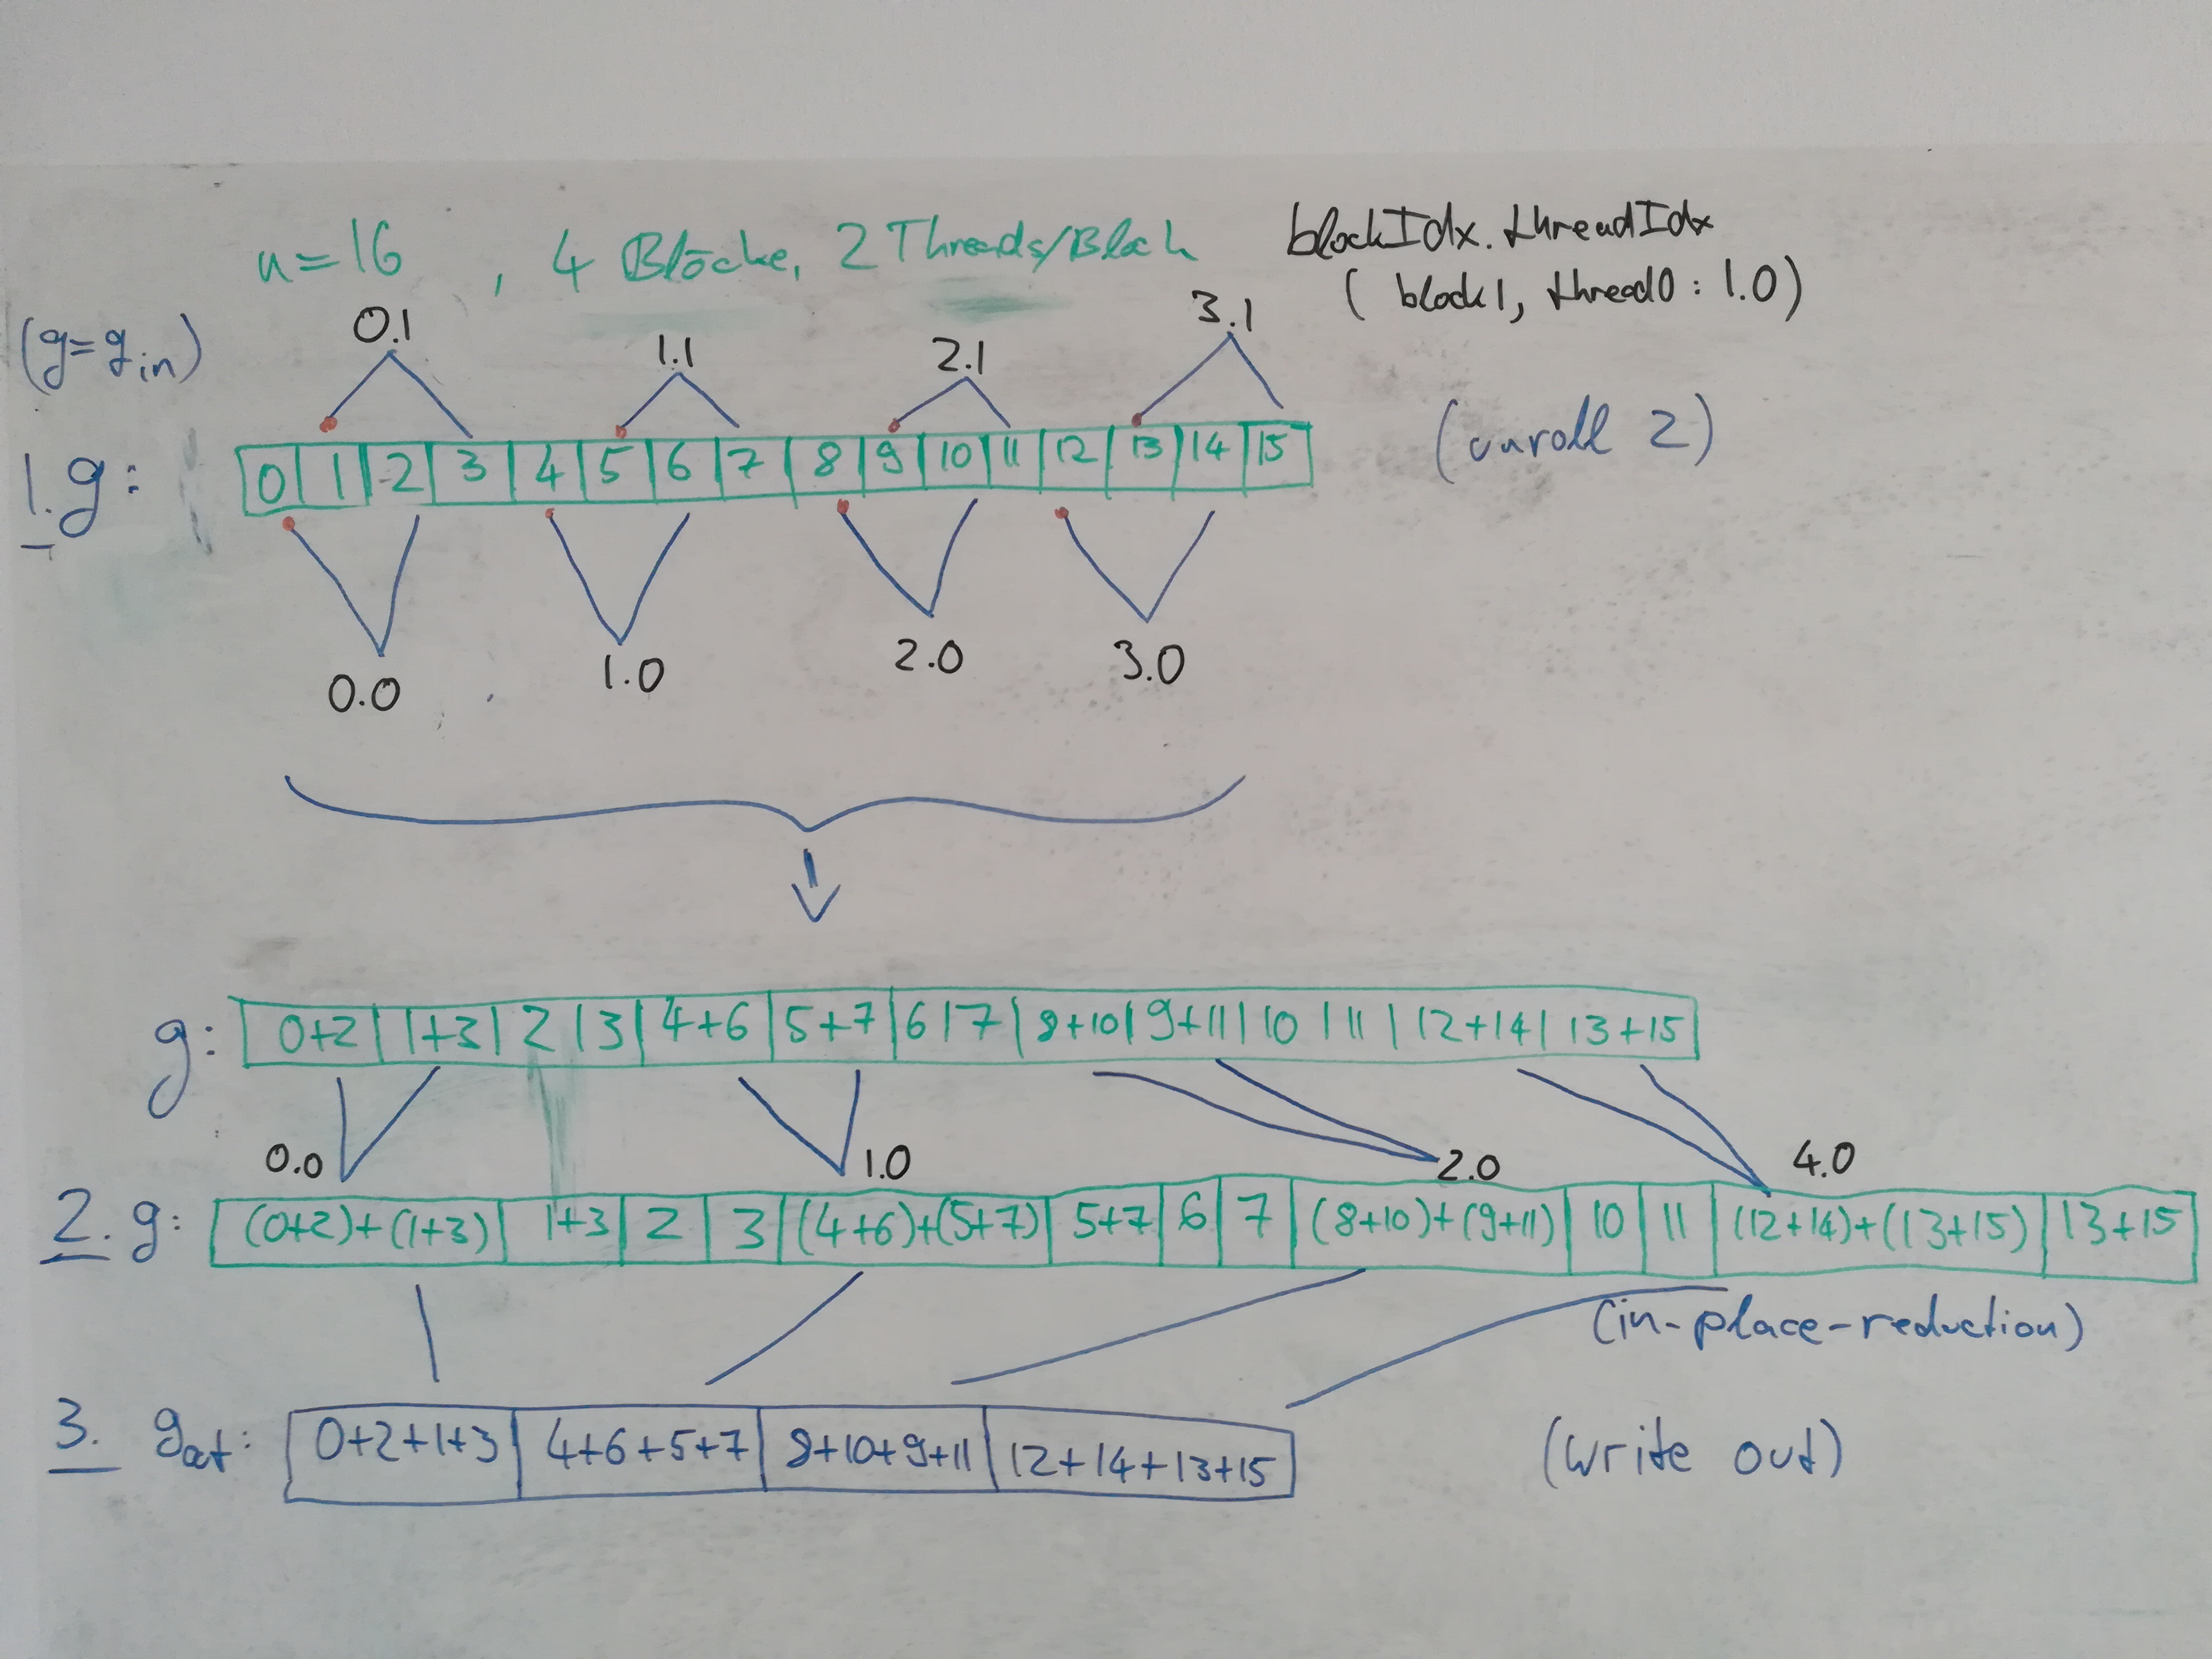 n=16 , 4 Blöcke, 2 Threads/Block
blockIdx.threadIdx
( block1, thread0 : 1.0)
(g=g_in)
0.1 1.1 2.1 3.1
(unroll 2)
1. g: 0 1 2 3 4 5 6 7 8 9 10 11 12 13 14 15
0.0 1.0 2.0 3.0
g: 0+2 | 1+3 | 2 | 3 | 4+6 | 5+7 | 6 | 7 | 8+10 | 9+11 | 10 | 11 | 12+14 | 13+15
0.0 1.0 2.0 4.0
2. g: (0+2)+(1+3) | 1+3 | 2 | 3 | (4+6)+(5+7) | 5+7 | 6 | 7 | (8+10)+(9+11) | 10 | 11 | (12+14)+(13+15) | 13+15
(in-place-reduction)
3. g_out: 0+2+1+3 | 4+6+5+7 | 8+10+9+11 | 12+14+13+15
(write out)